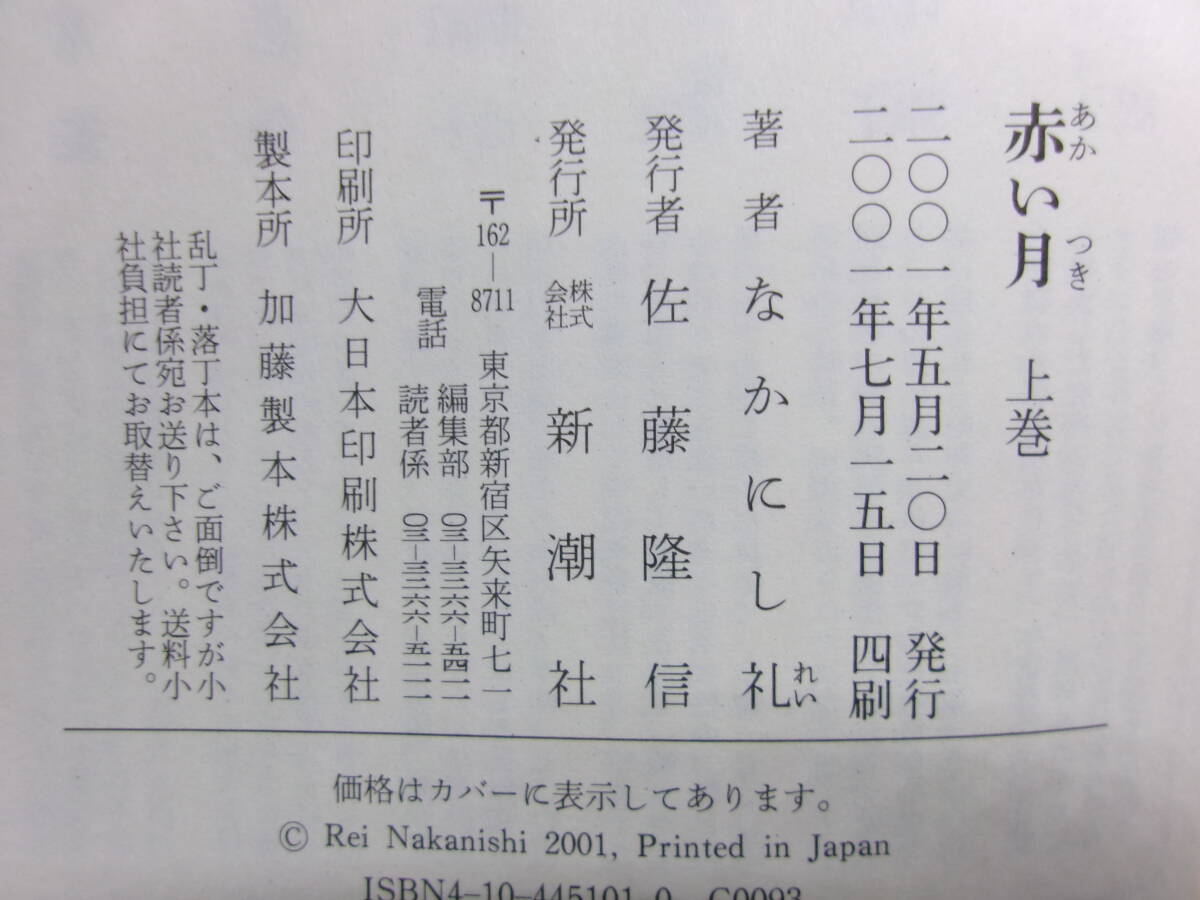 赤い月 上巻
あか つき
二〇〇一年五月二〇日 発行
二〇〇一年七月一五日 四刷
著者 なかにし礼
れい
発行者 佐藤隆信
発行所 株式会社 新潮社
〒162―8711 東京都新宿区矢来町七一
電話 編集部 〇三―三二六六―五四一一
読者係 〇三―三二六六―五一一一
印刷所 大日本印刷株式会社
製本所 加藤製本株式会社
乱丁・落丁本は、ご面倒ですが小
社読者係宛お送り下さい。送料小
社負担にてお取替えいたします。
価格はカバーに表示してあります。
© Rei Nakanishi 2001, Printed in Japan
ISBN4-10-445101-0 C0093